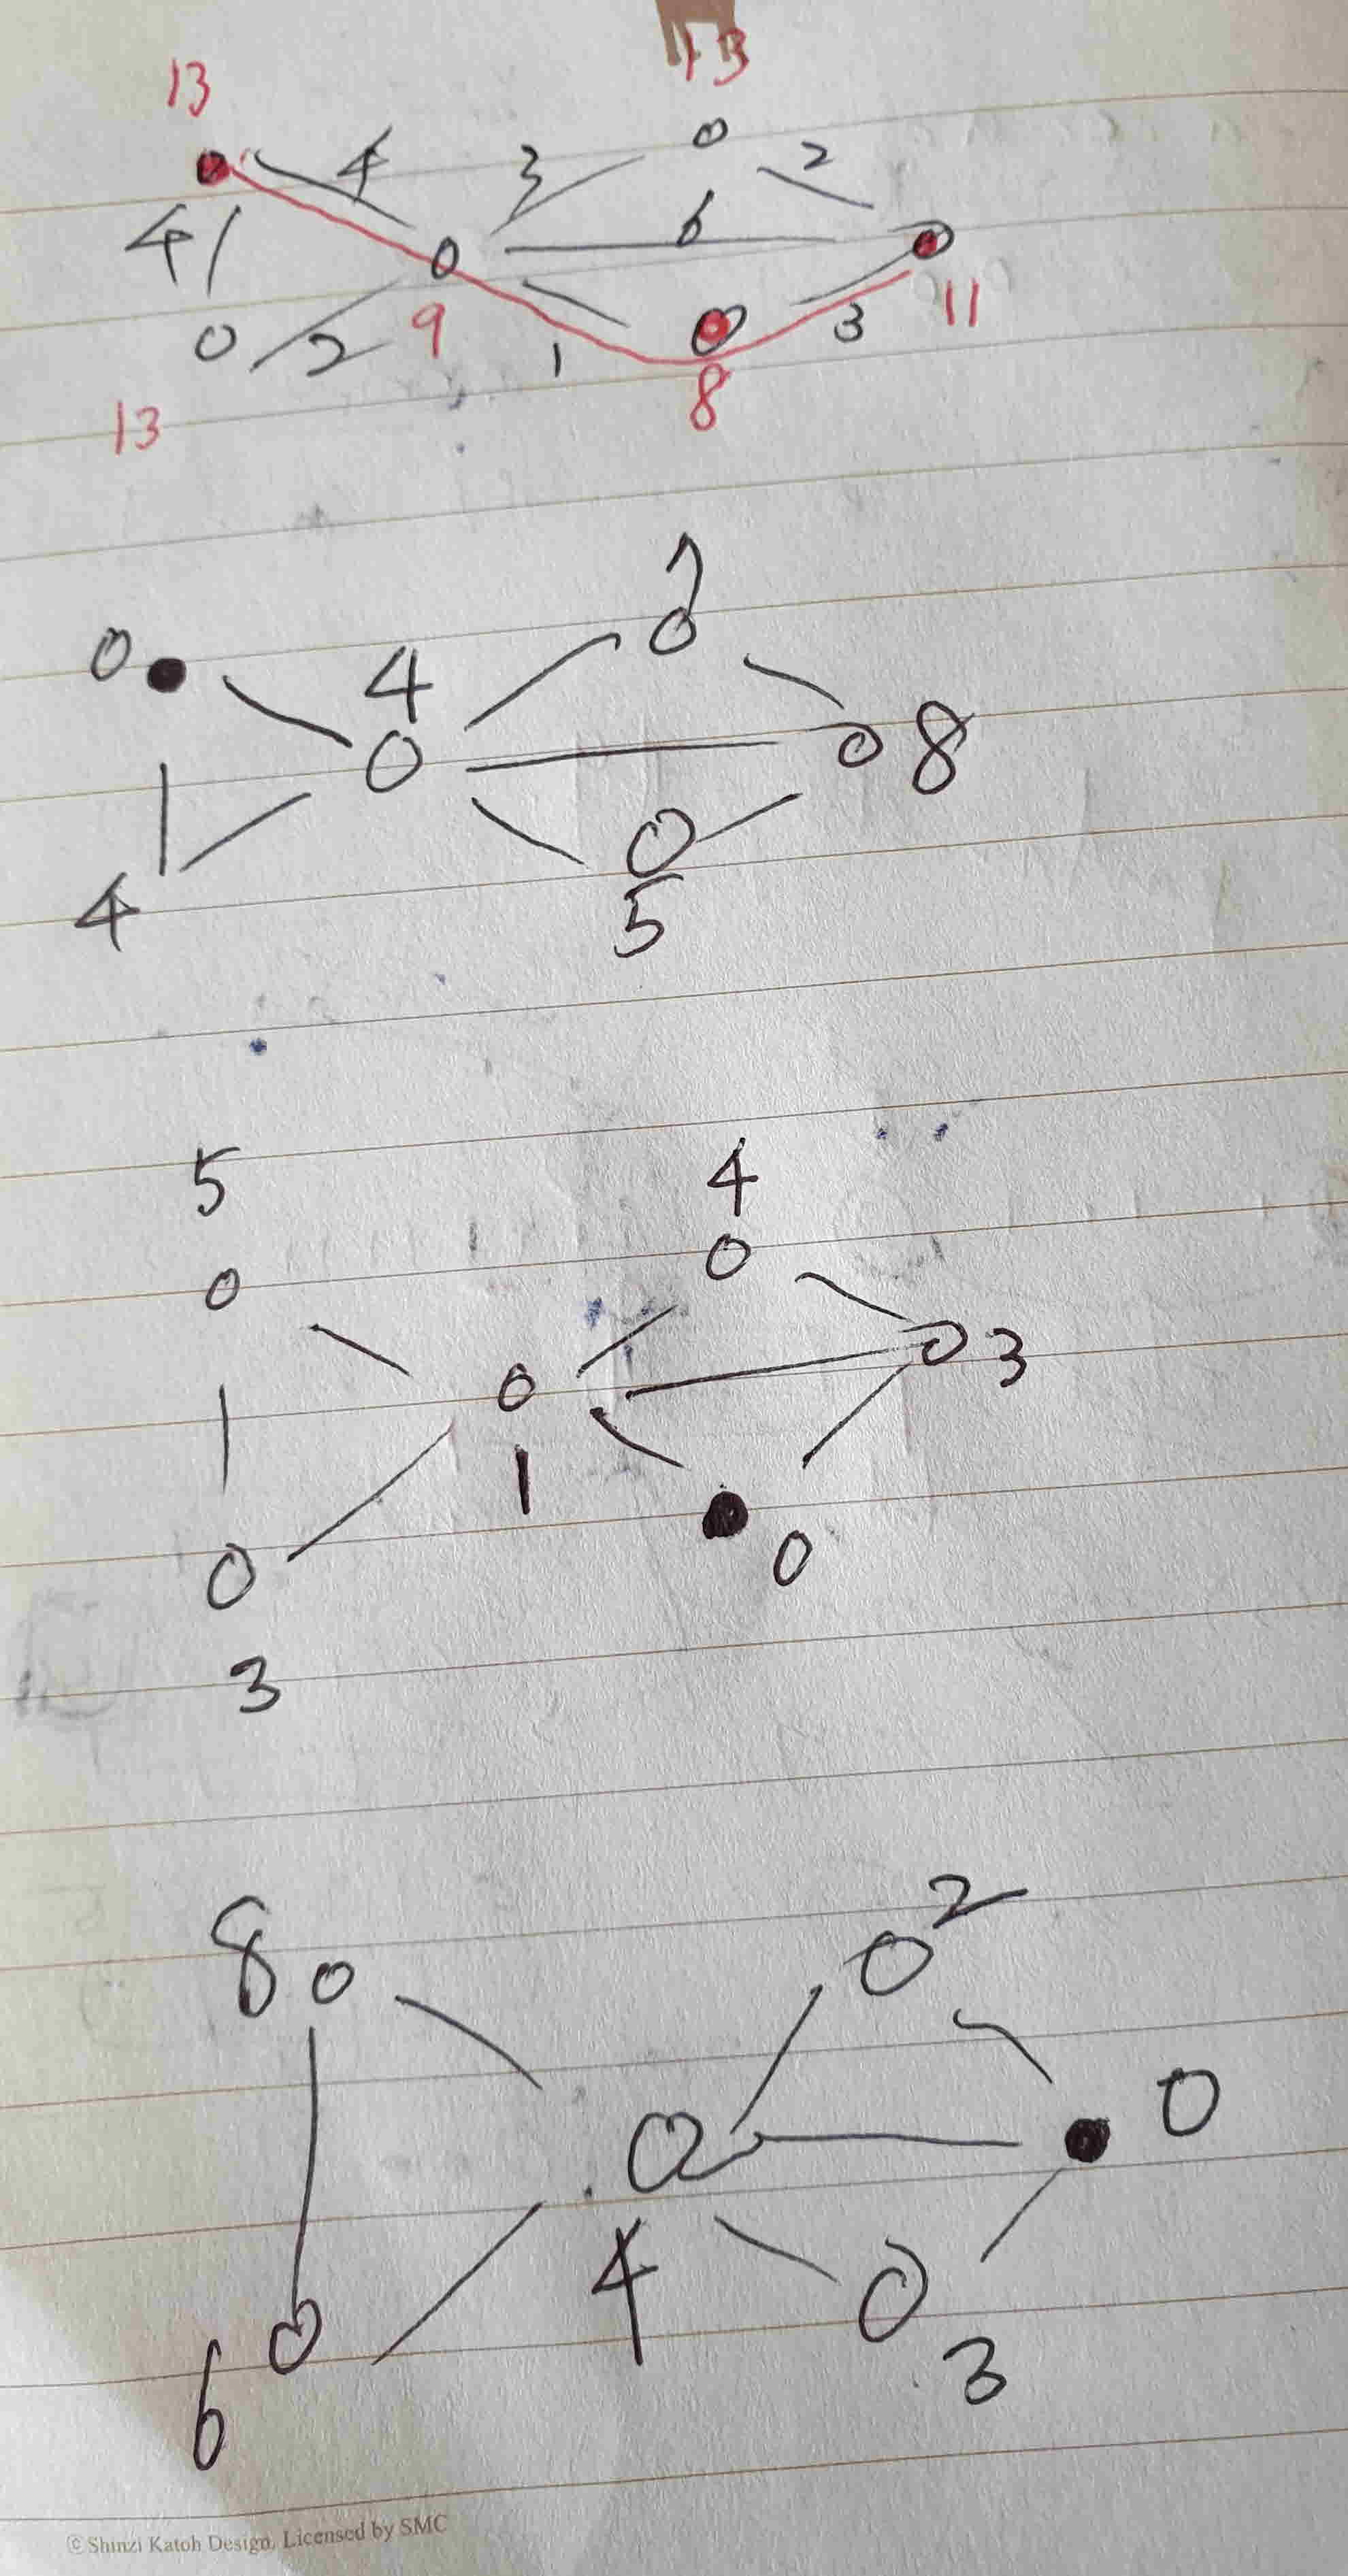 13 13
4 3 2
4 6
2 9 1 3 11
13 8
7
0 4
8
4 5
5 4
3
1 0
3
8 2
0
4
6 3
© Shinzi Katoh Design. Licensed by SMC